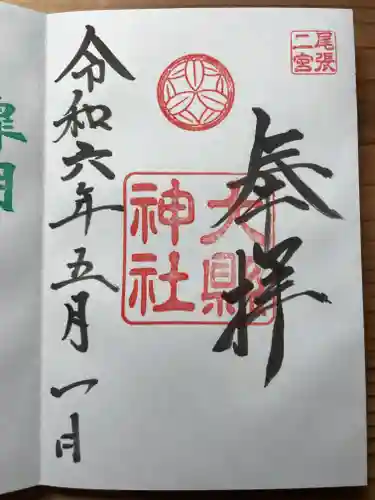 尾張
二宮
奉拝
大縣
神社
令和六年五月一日